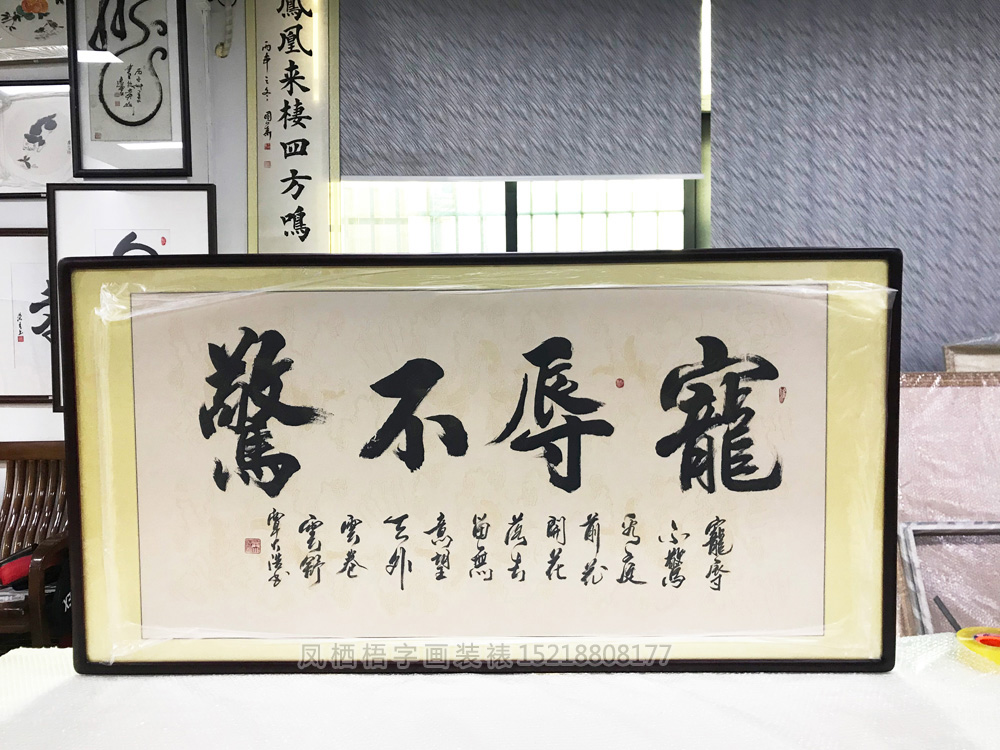 鳳凰来棲四方鳴
寵辱不驚
寵辱
不驚
看庭
前花
開花
落去
留無
意望
天外
雲卷
雲舒
凤栖梧字画装裱15218808177